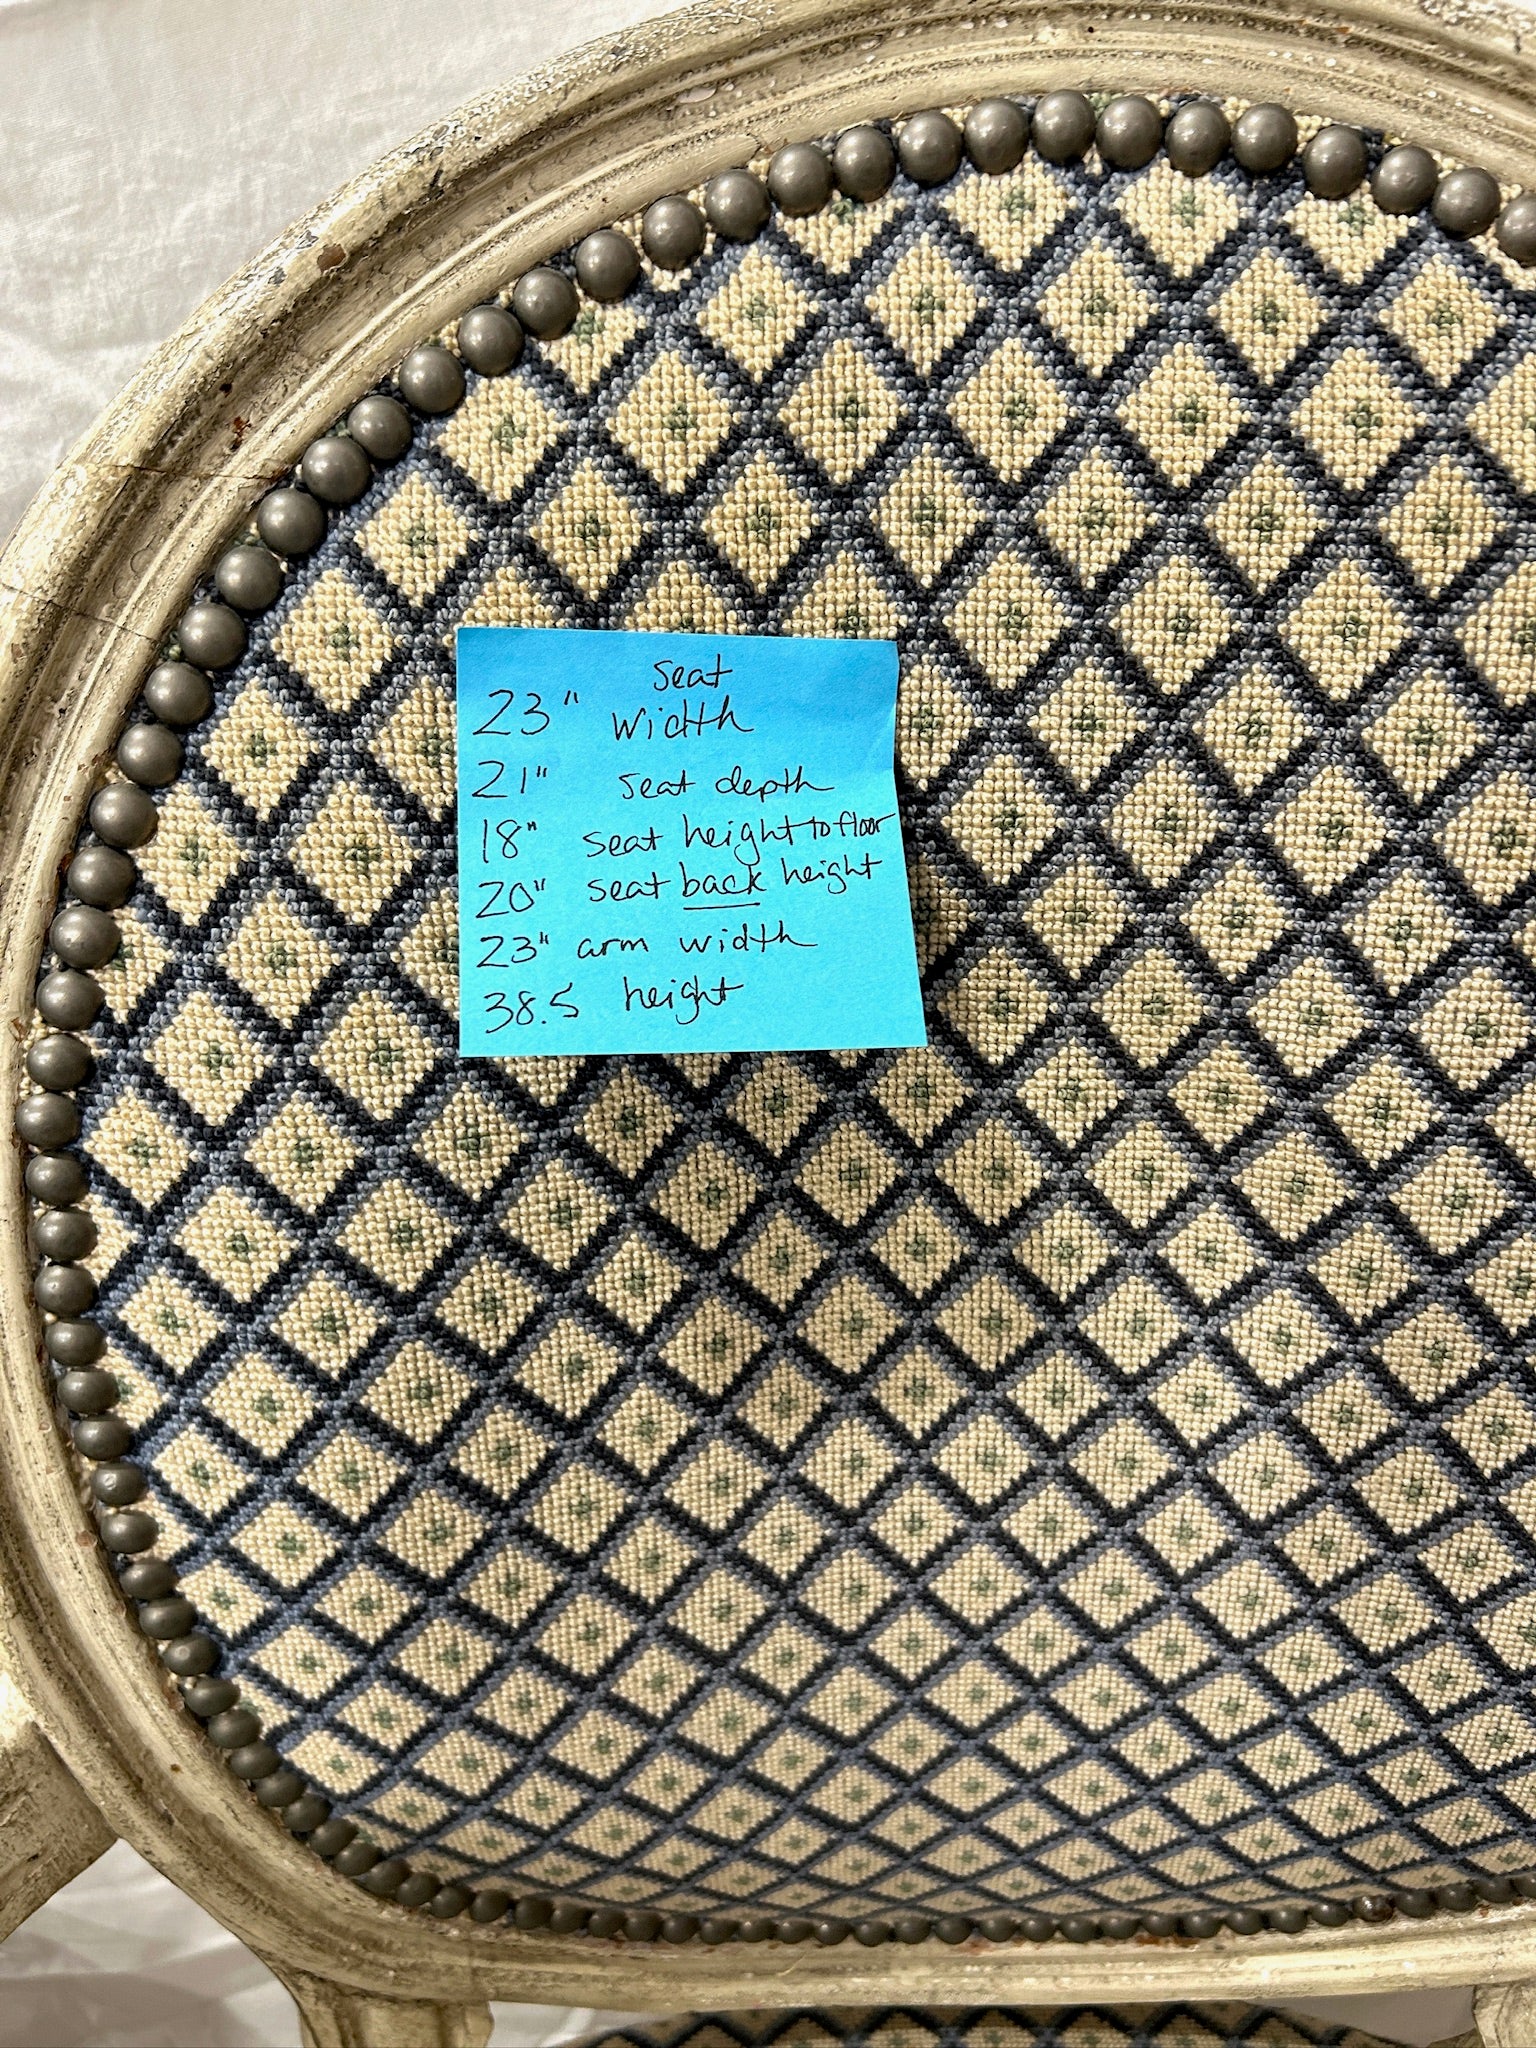 23" seat width
21" seat depth
18" seat height to floor
20" seat back height
23" arm width
38.5 height